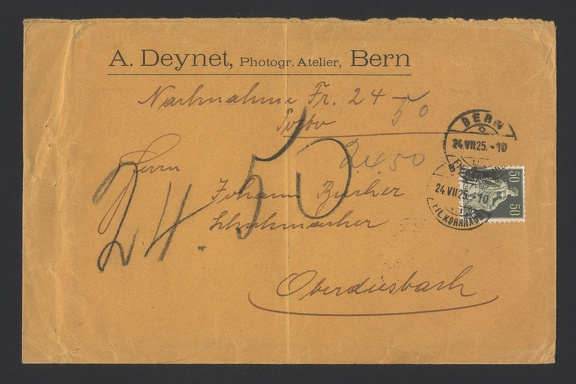 A. Deynet, Photogr. Atelier, Bern
Nachnahme Fr. 24 - 50
Porto
24.50
Herrn
Johann Zurcher
Schuhmacher
Oberdiesbach
24.50
BERN
24.VII.25.-10
24.VII.25.-10
KORNHAUS
50
50